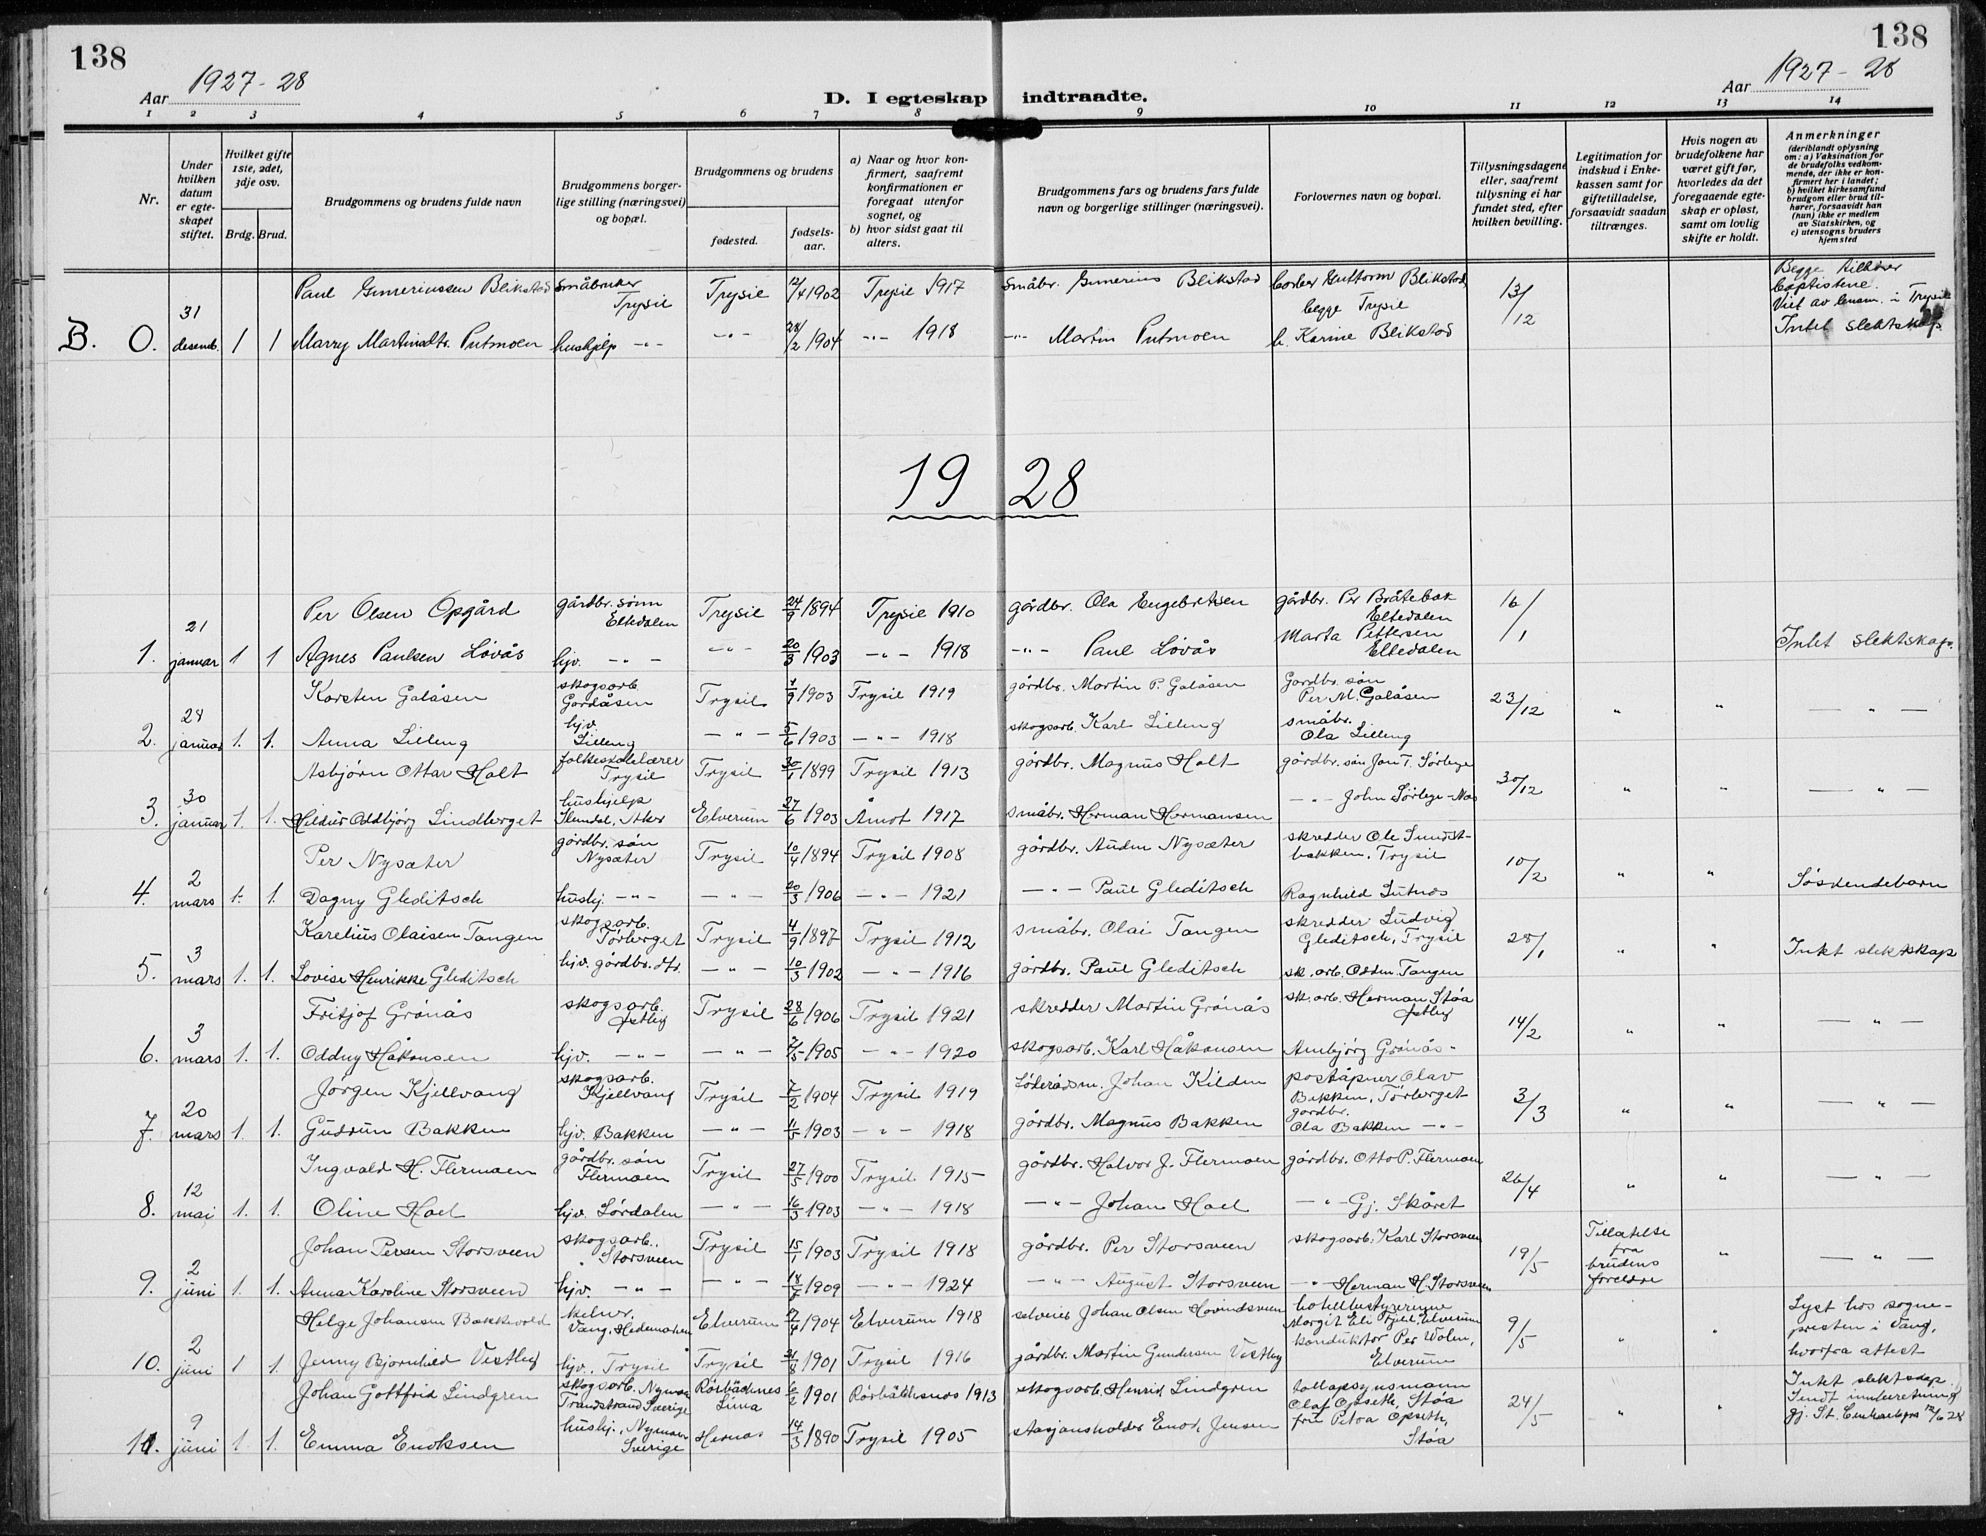 138
138
Aar 1927-28
Aar 1927-28
D. I egteskap indtraadte.
1 2 3 4 5 6 7 8 9 10 11 12 13 14
Nr.
Under hvilken datum er egteskapet stiftet.
Hvilket gifte 1ste, 2det, 3dje osv.
Brdg. Brud.
Brudgommens og brudens fulde navn
Brudgommens borgerlige stilling (næringsvei) og bopæl.
Brudgommens og brudens
fødested.
fødselsaar.
a) Naar og hvor konfirmert, saafremt konfirmationen er foregaat utenfor sognet, og
b) hvor sidst gaat til alters.
Brudgommens fars og brudens fars fulde navn og borgerlige stillinger (næringsvei).
Forlovernes navn og bopæl.
Tillysningsdagene eller, saafremt tillysning ei har fundet sted, efter hvilken bevilling.
Legitimation for indskud i Enkekassen samt for giftetilladelse, forsaavidt saadan tiltrænges.
Hvis nogen av brudefolkene har været gift før, hvorledes da det foregaaende egteskap er opløst, samt om lovlig skifte er holdt.
Anmerkninger
(deriblandt oplysning om: a) Vaksination for de brudefolks vedkommende, der ikke er konfirmert her i landet;
b) hvilket kirkesamfund brudgom eller brud tilhører, forsaavidt han (hun) ikke er medlem av Statskirken, og
c) utensogns bruders hjemsted
Paul Gunerinssen Blikstad småbruker Trysil Trysil 12/4 1902 Trysil 1917 småbr. Gunerius Blikstad Guttorm Blikstad begge Trysil 13/12 Begge tilhører baptistene. Viet av i Trysil
B. 0. 31 desemb. 1 1 Marry Martinsdtr. Putmoen hushjelp -"- -"- 28/2 1904 -"- 1918 -"- Martin Putmoen Karine Blikstad Intet slektskap.
1928
Per Olsen Opgård gårdbr. sønn Eltedalen Trysil 24/9 1894 Trysil 1910 gårdbr. Ola Engebretsen gårdbr. Per Bråtebæk Eltedalen 16/1
1. 21 januar 1 1 Agnes Paulsen Løvås hjv. -"- -"- 20/3 1903 -"- 1918 -"- Paul Løvås Marta Pettersen Eltedalen Intet slektskap.
Karsten Galåsen skogsarb. Gordåsen Trysil 1/9 1903 Trysil 1919 gårdbr. Martin P. Galåsen Gardbr. søn Per M. Galåsen 23/12 " " -"-
2. 28 januar 1. 1. Anna Lilleng hjv. Lilleng -"- 5/6 1903 -"- 1918 skogsarb. Karl Lilleng småbr. Ola Lilleng
Asbjørn Ottar Holt folkeskolelærer Trysil Trysil 30/1 1899 Trysil 1913 gårdbr. Magnus Holt gårdbr. søn Jon T. Sørlege 30/12 " " -"-
3. 30 januar 1. 1. Hildur Oddbjørg Lindberget hushjelp Slemdal, Aker Elverum 27/6 1903 Åmot 1917 småbr. Herman Hermansen -"- John Sørlege-Mos
Per Nysæter gårdbr. søn Nysæter Trysil 10/4 1894 Trysil 1908 gårdbr. Audun Nysæter skredder Ole Sundstbakken, Trysil 10/2 " "
4. 2 mars 1. 1. Dagny Gleditsch hushj. -"- -"- 20/3 1906 -"- 1921 -"- Paul Gleditsch Ragnhild Lutnæs Søskendebarn
Karelius Olaisen Tangen skogsarb. Tørberget Trysil 4/9 1897 Trysil 1912 småbr. Olai Tangen skredder Ludvig Gleditsch, Trysil 28/1 " " Intet slektskap
5. 3 mars 1. 1. Lovise Henrikke Gleditsch hjv. gårdbr. dtr. -"- 10/3 1902 -"- 1916 gårdbr. Paul Gleditsch sk. arb. Oddm. Tangen
Fritjof Grønås skogsarb. Østby Trysil 28/6 1906 Trysil 1921 skredder Martin Grønås sk. arb. Herman Støa Østby 14/2 " " -"-
6. 3 mars 1. 1. Oddny Håkonsen hjv. -"- -"- 2/5 1905 -"- 1920 skogsarb. Karl Håkonsen Ambjørg Grønås -"
Jørgen Kjellvang skogsarb. Kjellvang Trysil 7/2 1904 Trysil 1919 Johan Kilden poståpner Olav Bakken, Tørberget 3/3 " " -"-
7. 20 mars 1. 1. Gudrun Bakken hjv. Bakken -"- 11/5 1903 -"- 1918 gårdbr. Magnus Bakken gårdbr. Ola Bakken -"-
Ingvald H. Flermoen gårdbr. søn Flermoen Trysil 27/5 1900 Trysil 1915 gårdbr. Halvor J. Flermoen gårdbr. Otto P. Flermoen 26/4 " " -"-
8. 12 mai 1. 1. Oline Hoel hjv. Sørdalen -"- 16/3 1903 -"- 1918 -"- Johan Hoel -"- Gj. Skåret
Johan Persen Storsveen skogsarb. Storsveen Trysil 15/1 1903 Trysil 1918 gårdbr. Per Storsveen skogsarb. Karl Storsveen 19/5 Tillatelse fra brudens foreldre " -"-
9. 2 juni 1. 1. Anna Karoline Storsveen hjv. -"- -"- 18/7 1909 -"- 1924 -"- August Storsveen -"- Herman H. Storsveen
Helge Johansen Bakkevold kelner, Vang, Hedemarken Elverum 17/4 1904 Elverum 1918 selveier Johan Olsen Hovindsveen hotellbestyrerinne Margit Eli Elverum 9/5 " " Lyst hos sognepresten i Vang, hvorfra attest
10. 2 juni 1 1. Jenny Bjørnhild Vestby hjv. Trysil Trysil 31/8 1901 Trysil 1916 gårdbr. Martin Gundersen Vestby konduktør Per Wolen, Elverum
Johan Gottfrid Lindgren skogsarb. Nyman Transtrand Sverige Rörbäcknes Lima 6/2 1901 Rörbäcksnäs 1913 skogsarb. Henrik Lindgren tollopsynsmann Olaf Opseth, Støa 24/5 " " Intet slektskap. Sendt innberetning gj. St. 12/6 28
11. 9 juni 1 1. Emma Enoksen hushj., Nyman Sverige Hernes 14/3 1890 Trysil 1905 stasjonsholder Enok Jensen fru Petra Opseth, Støa